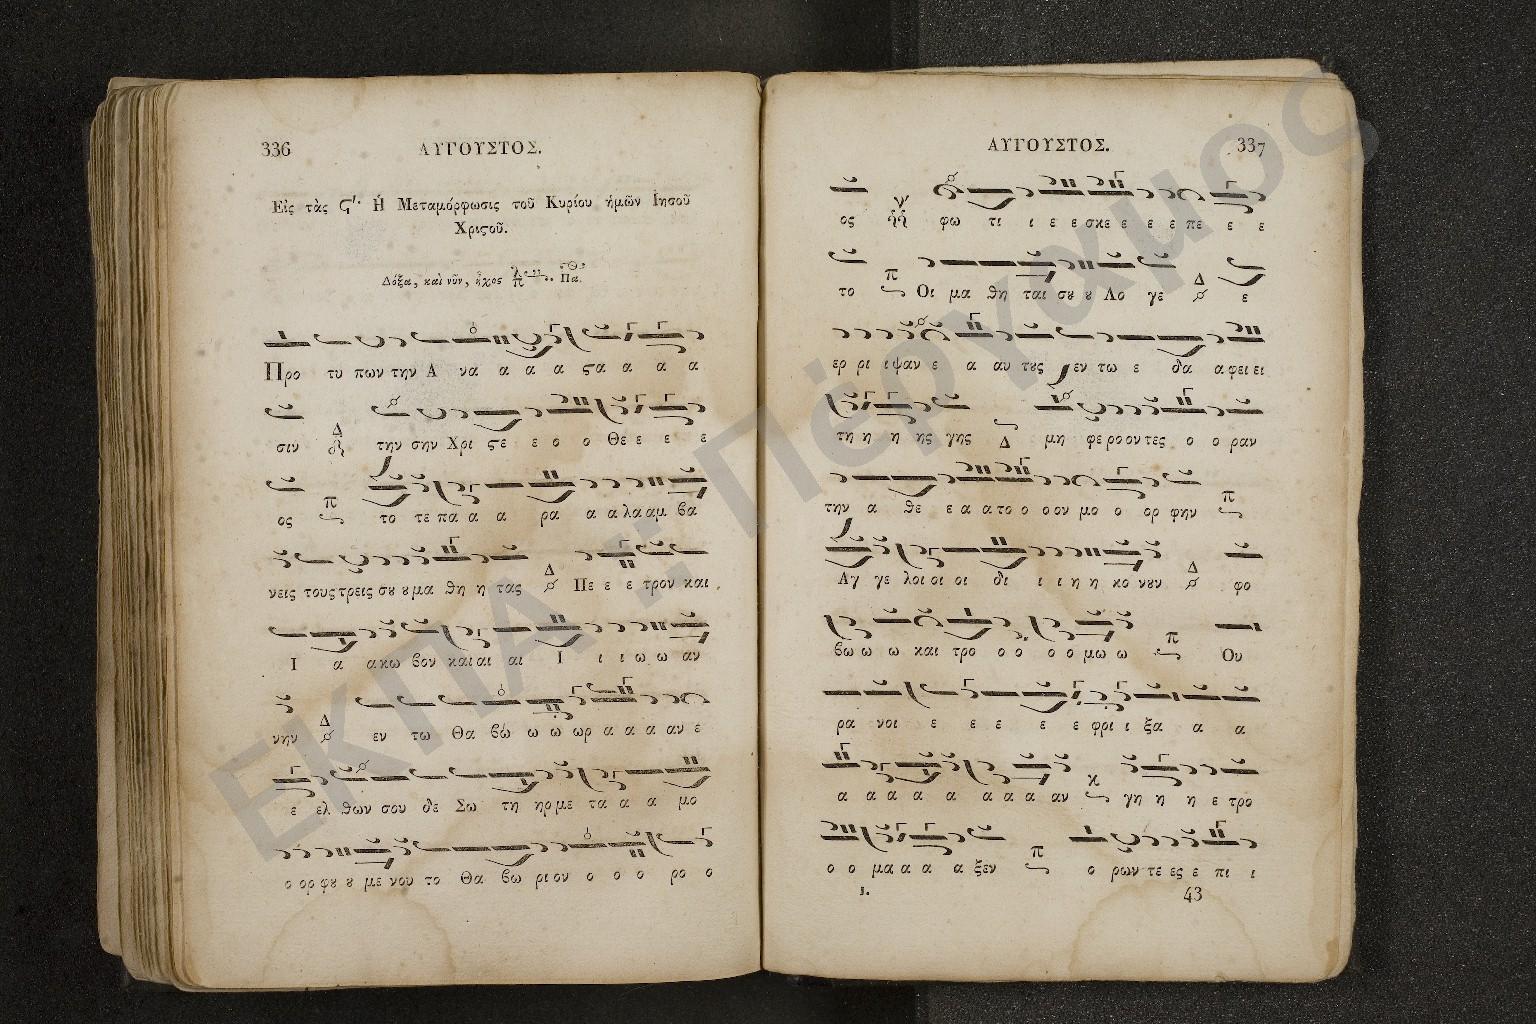 336 ΑΥΓΟΥΣΤΟΣ.
Εἰς τὰς Ϛ'. Ἡ Μεταμόρφωσις τοῦ Κυρίου ἡμῶν Ἰησοῦ
Χριϛοῦ.
Δόξα, καὶ νῦν, ἦχος π Πα.
Προ τυ πων την Α να α α α ϛα α α α
σιν Δ την σην Χρι ϛε ε ο ο Θε ε ε ε
ος π το τε πα α α ρα α α λα αμ βα
νεις τους τρεις σȣ ȣ μα θη η τας Δ Πε ε ε τρον και
Ι α α κω βον και αι αι Ι ι ι ω ω αν
νην Δ εν τω Θα βώ ω ω ωρ α α α αν ε
ε ελ θων σου δε Σω τη ηρ με τα α α μο
ο ορ φȣ ȣ με νου το Θα βω ρι ον ο ο ο ρο ο
ΑΥΓΟΥΣΤΟΣ. 337
ος φω τι ι ε ε σκε ε ε ε πε ε ε
το π Οι μα θη ται σȣ ȣ Λο γε Δ ε
ερ ρι ιψαν ε α αυ τȣς εν τω ε δα α φει ει
τη η η ης γης Δ μη φε ρο ον τες ο ο ραν
την α θε ε α α το ο ο ον μο ο ορ φην π
Αγ γε λοι οι οι δι ι ι η η κο νȣν Δ φο
βω ω ω και τρο ο ο ο ο μω ω π Ου
ρα νοι ε ε ε ε ε φρι ι ξα α α
α α α α α α α α αν κ γη η η ε τρο
ο ο μα α α α ξεν π ο ρων τε ες ε πι ι
ΕΚΠΑ :: Πέργαμος
43